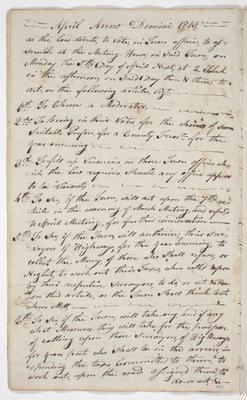 April Anno Domini 181
as the law directs, to Vote, in Town affairs, to as-
semble at the Meeting House, in said Town, on
Monday the 5th Day of April Next, at 2 Clock
in the afternoon, on said Day then & there to
act, on the following articles, viz,
1st. To Choose a Moderator.
2nd. To Bring in their Votes for the choice of some
Suitable Person for a County Treasr. for the
year ensuing
3d. To fill up Vacancies in those Town offices whi-
ch the law requires, should any office appear
to be Vacant
4th. To See, if the Town, will act upon the 7th ar-
ticle in the warning of March Meeting, and refered
to April Meeting, for further consideration
5th. To See, if the Town, will authorise their Sur-
veyors of Highways, for the year Ensuing to
collect the Money of those who shall refuse, or
Neglect, to work out their Taxes, when called upon
by their respective Surveyors, to do, or act
on this article, as the Town shall think best
when Mett
6th. To See, if the Town, will take any and if any
what Measures they will take for the purpose
of calling upon those Surveyors, of Highways
for year past who shall be in the arrears, in
expending the taxes Committed to them, to
work out, upon the road assigned them, to
do or act &c